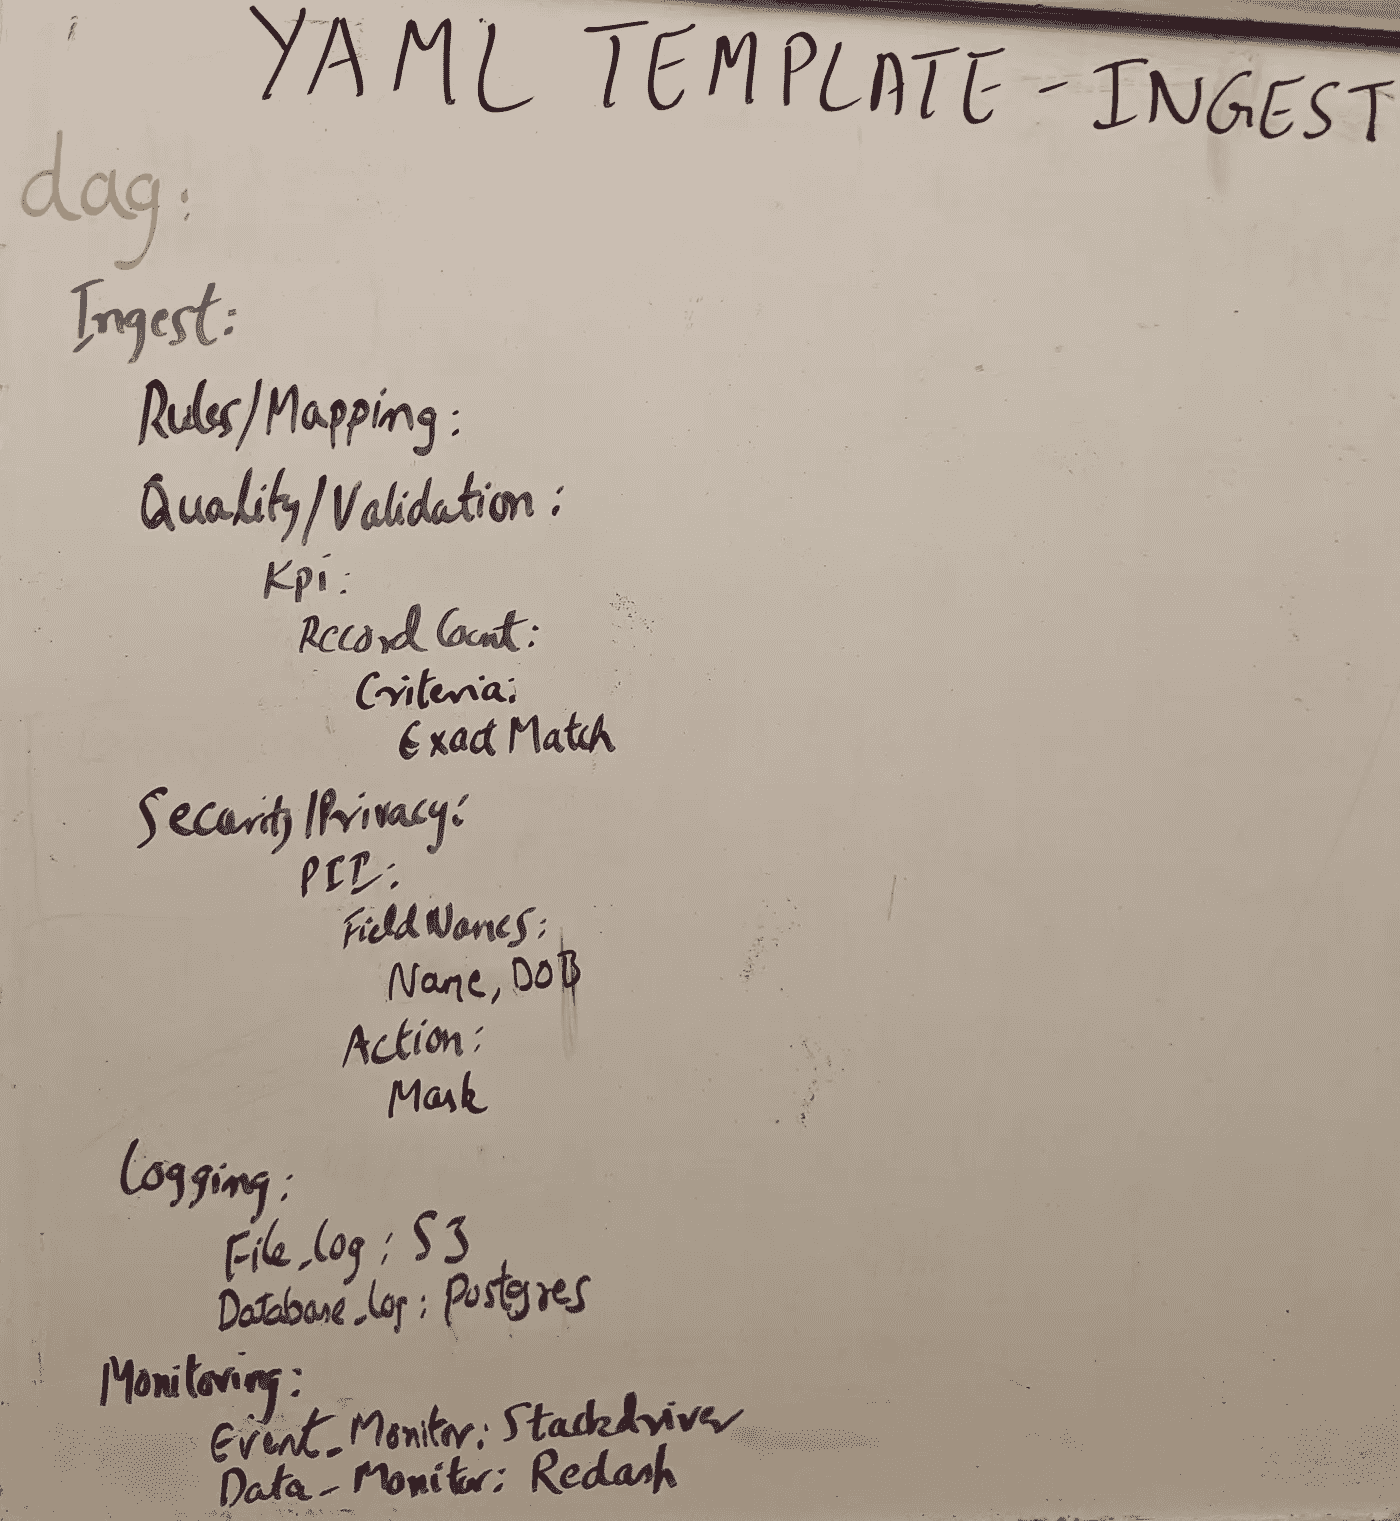 YAML TEMPLATE - INGEST
dag:
Ingest:
Rules/Mapping:
Quality/Validation:
Kpi:
Record Count:
Criteria:
Exact Match
Security/Privacy:
PII:
Field Names:
Name, DOB
Action:
Mask
Logging:
File_log: S3
Database_log: Postgres
Monitoring:
Event_Monitor: Stackdriver
Data_Monitor: Redash